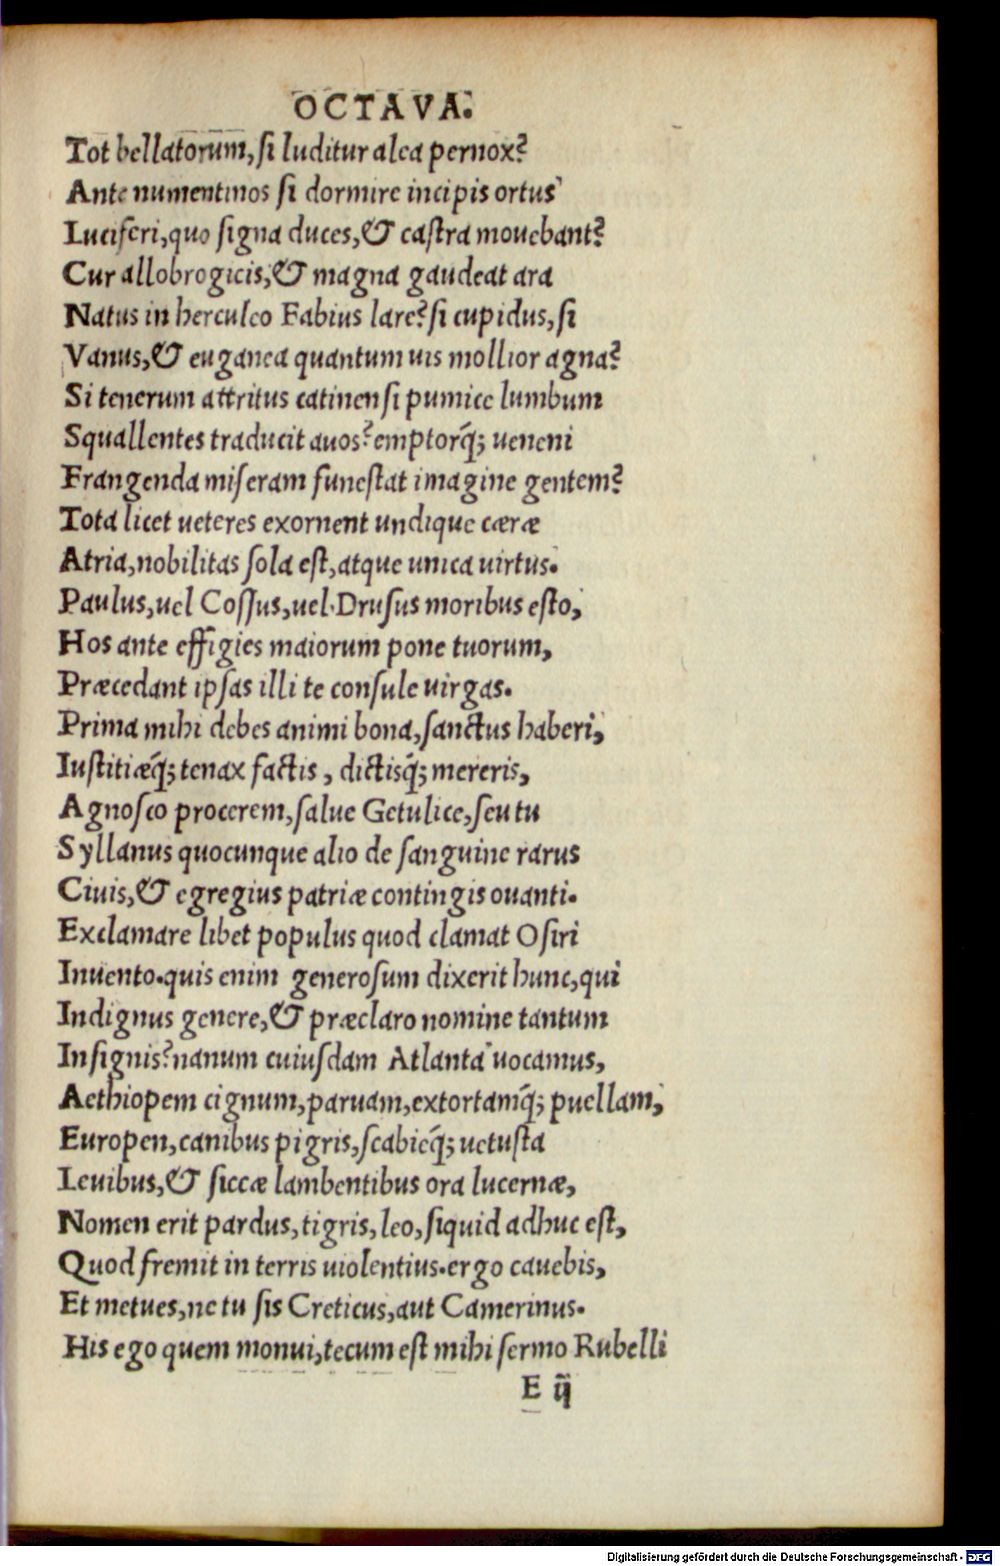 OCTAVA.
Tot bellatorum, si luditur alea pernox?
Ante numentinos si dormire incipis ortus
Luciferi, quo signa duces, & castra mouebant?
Cur allobrogicis, & magna gaudeat ara
Natus in herculeo Fabius lare? si cupidus, si
Vanus, & euganea quantum uis mollior agna?
Si tenerum attritus catinensi pumice lumbum
Squallentes traducit auos? emptorq̃; ueneni
Frangenda miseram funestat imagine gentem?
Tota licet ueteres exornent undique cæræ
Atria, nobilitas sola est, atque unica uirtus.
Paulus, uel Cossus, uel Drusus moribus esto,
Hos ante effigies maiorum pone tuorum,
Præcedant ipsas illi te consule uirgas.
Prima mihi debes animi bona, sanctus haberi,
Iustitiæq̃; tenax factis, dictisq̃; mereris,
Agnosco procerem, salue Getulice, seu tu
Syllanus quocunque alio de sanguine rarus
Ciuis, & egregius patriæ contingis ouanti.
Exclamare libet populus quod clamat Osiri
Inuento. quis enim generosum dixerit hunc, qui
Indignus genere, & præclaro nomine tantum
Insignis? nanum cuiusdam Atlanta uocamus,
Aethiopem cignum, paruam, extortamq̃; puellam,
Europen, canibus pigris, scabieq̃; uetusta
Leuibus, & siccæ lambentibus ora lucernæ,
Nomen erit pardus, tigris, leo, siquid adhuc est,
Quod fremit in terris uiolentius. ergo cauebis,
Et metues, ne tu sis Creticus, aut Camerinus.
His ego quem monui, tecum est mihi sermo Rubelli
E ij
Digitalisierung gefördert durch die Deutsche Forschungsgemeinschaft - DFG